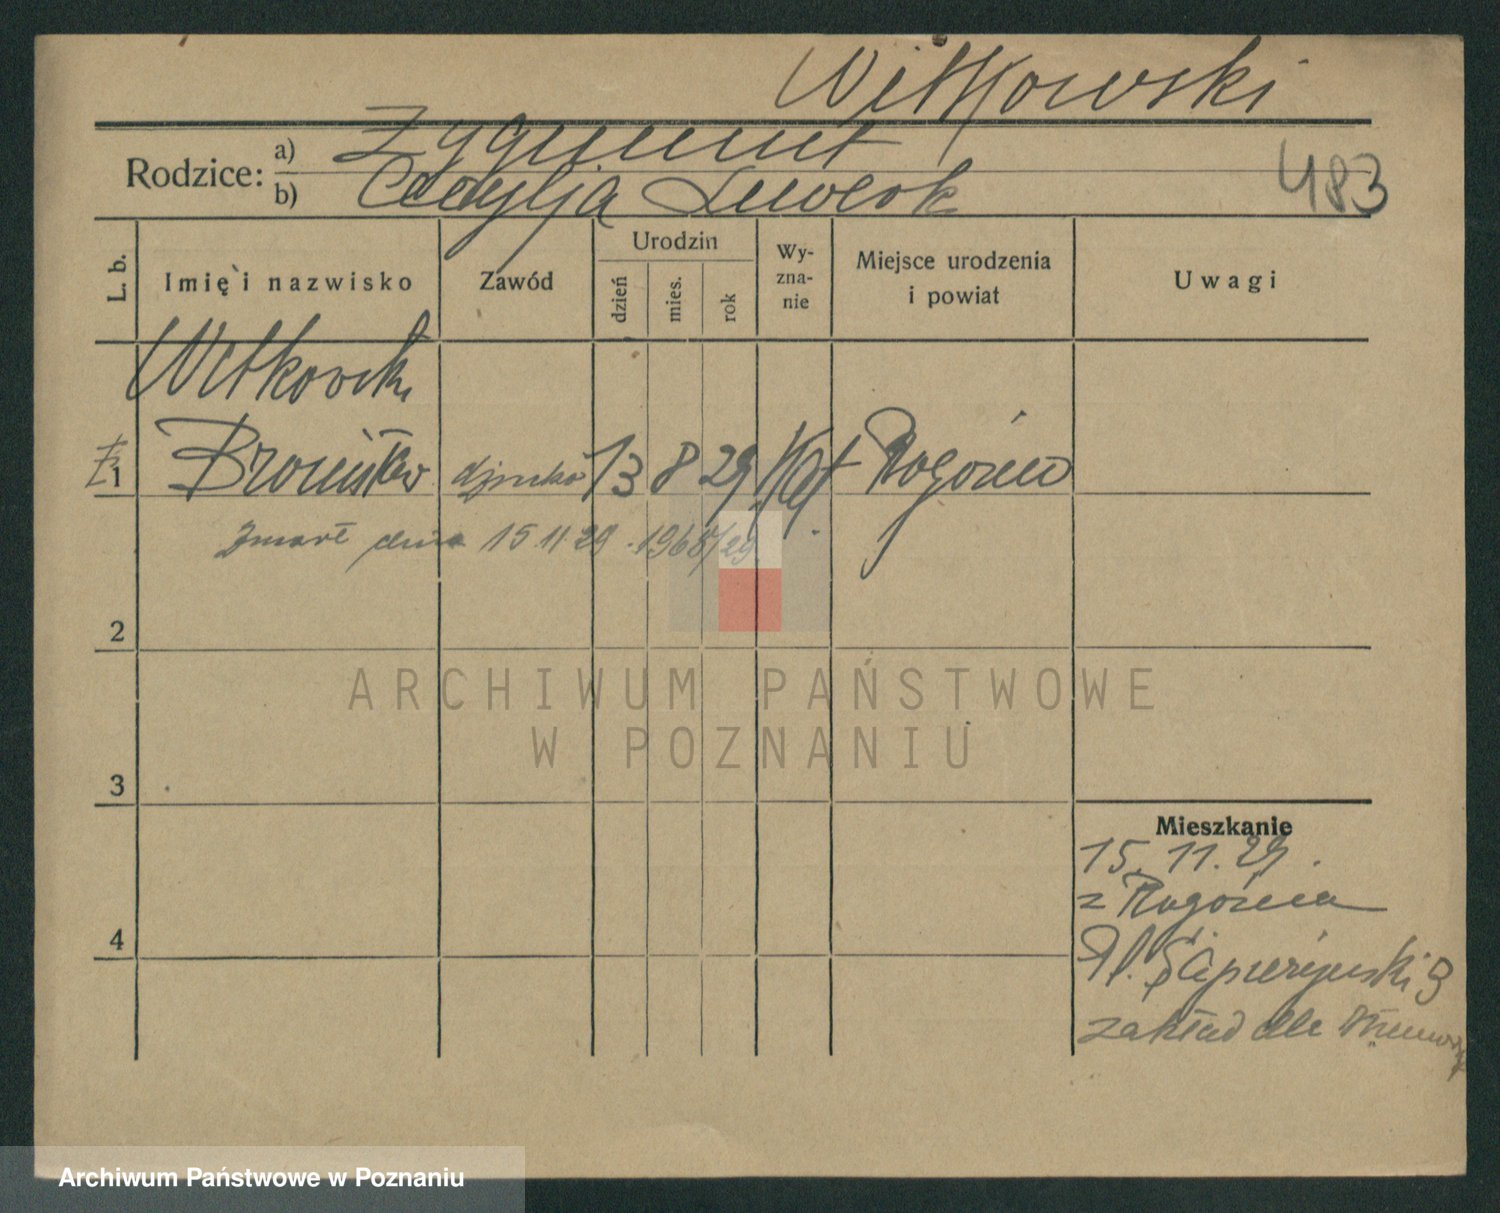 Witkowski
Rodzice: a) Zygmunt
b) Cecylja
483
L. b. Imię i nazwisko Zawód Urodzin dzień mies. rok Wy-zna-nie Miejsce urodzenia i powiat Uwagi
Witkowski
1 Bronisław dziecko 13 8 29 Kat Rogoźno
zmarł dnia 15.11.29
2
ARCHIWUM PAŃSTWOWE
W POZNANIU
3
Mieszkanie
15. 11. 29.
z Rogoźna
4
Pl. Sapieżyński 3
zakład dla
Archiwum Państwowe w Poznaniu